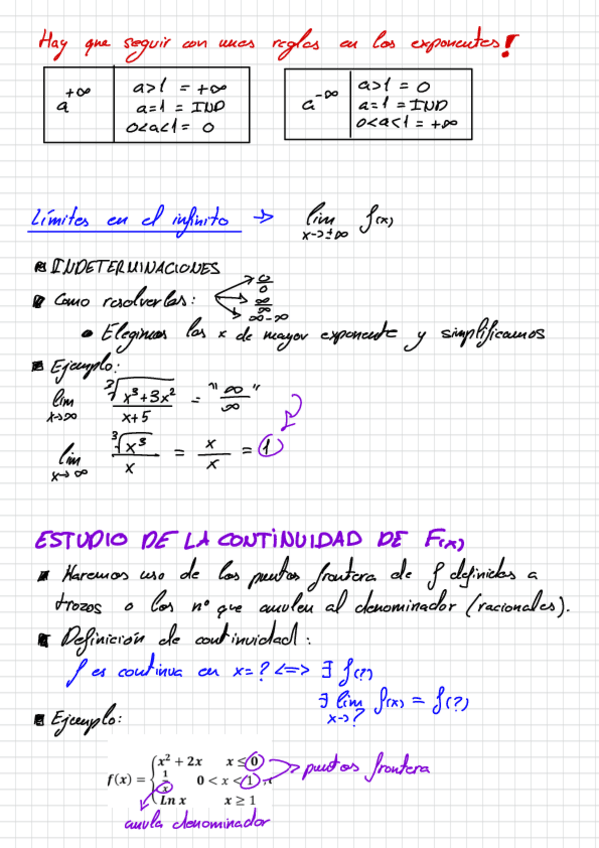 Hay que seguir con unas reglas en los exponentes!
a^{+∞} | a>1 = +∞
a=1 = IND
0<a<1 = 0
a^{-∞} | a>1 = 0
a=1 = IND
0<a<1 = +∞
Límites en el infinito → lim_{x→±∞} f(x)
INDETERMINACIONES
Como resolverlas: 0/0
∞/∞
∞-∞
• Elegimos las x de mayor exponente y simplificamos
Ejemplo:
lim_{x→∞} ∛(x³+3x²) / (x+5) = "∞/∞"
lim_{x→∞} ∛(x³) / x = x/x = 1
ESTUDIO DE LA CONTINUIDAD DE F(x)
Haremos uso de los puntos frontera de f definidas a
trozos o los nº que anulen al denominador (racionales).
Definición de continuidad:
f es continua en x=? <=> ∃ f(?)
∃ lim_{x→?} f(x) = f(?)
Ejemplo:
f(x) = { x² + 2x x ≤ 0
1/x 0 < x < 1 → puntos frontera
Ln x x ≥ 1
anula denominador